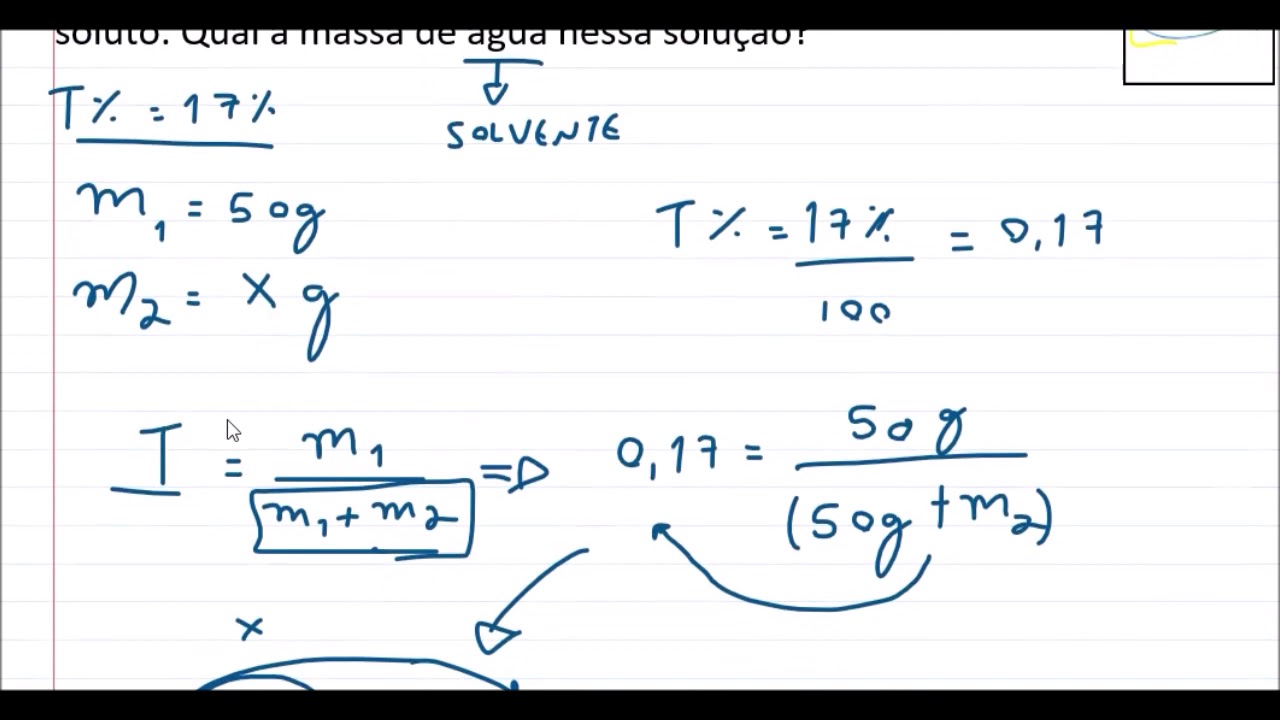 soluto. Qual a massa de água nessa solução?
T% = 17%
SOLVENTE
m₁ = 50g
m₂ = x g
T% = 17% / 100 = 0,17
T = m₁ / m₁ + m₂ => 0,17 = 50g / (50g + m₂)
x